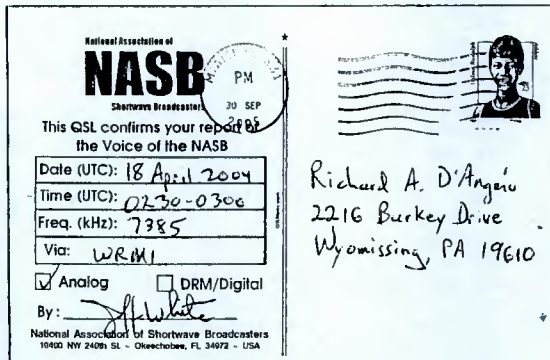 National Association of
NASB
Shortwave Broadcasters
This QSL confirms your report of
the Voice of the NASB
Date (UTC): 18 April 2004
Time (UTC): 0230-0300
Freq. (kHz): 7385
Via: WRMI
Analog
DRM/Digital
By: Jeff White
National Association of Shortwave Broadcasters
10400 NW 240th St. - Okeechobee, FL 34972 - USA
PM
30 SEP
Richard A. D'Angelo
2216 Burkey Drive
Wyomissing, PA 19610